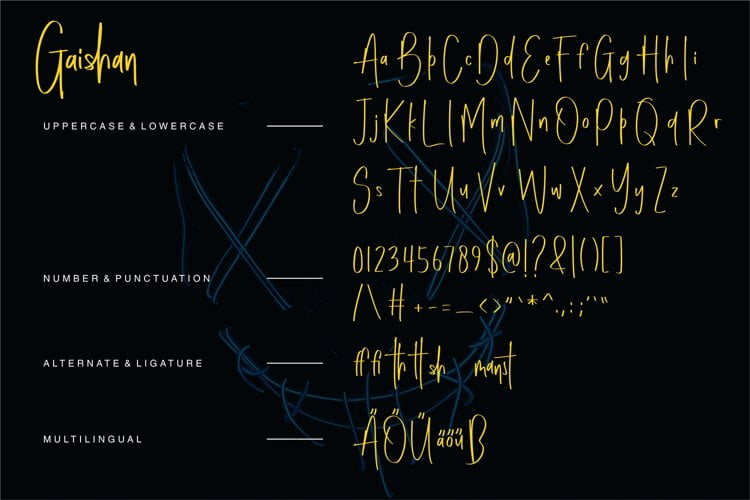 Gaishan
UPPERCASE & LOWERCASE
Aa Bb Cc Dd Ee Ff Gg Hh Ii
Jj Kk Ll Mm Nn Oo Pp Qq Rr
Ss Tt Uu Vv Ww Xx Yy Zz
NUMBER & PUNCTUATION
0123456789$@!?&|()[]
/\#+-=_<>"`*^.,:;'‘“
ALTERNATE & LIGATURE
ff fi th tt sh manst
MULTILINGUAL
ÄÖÜäöüß